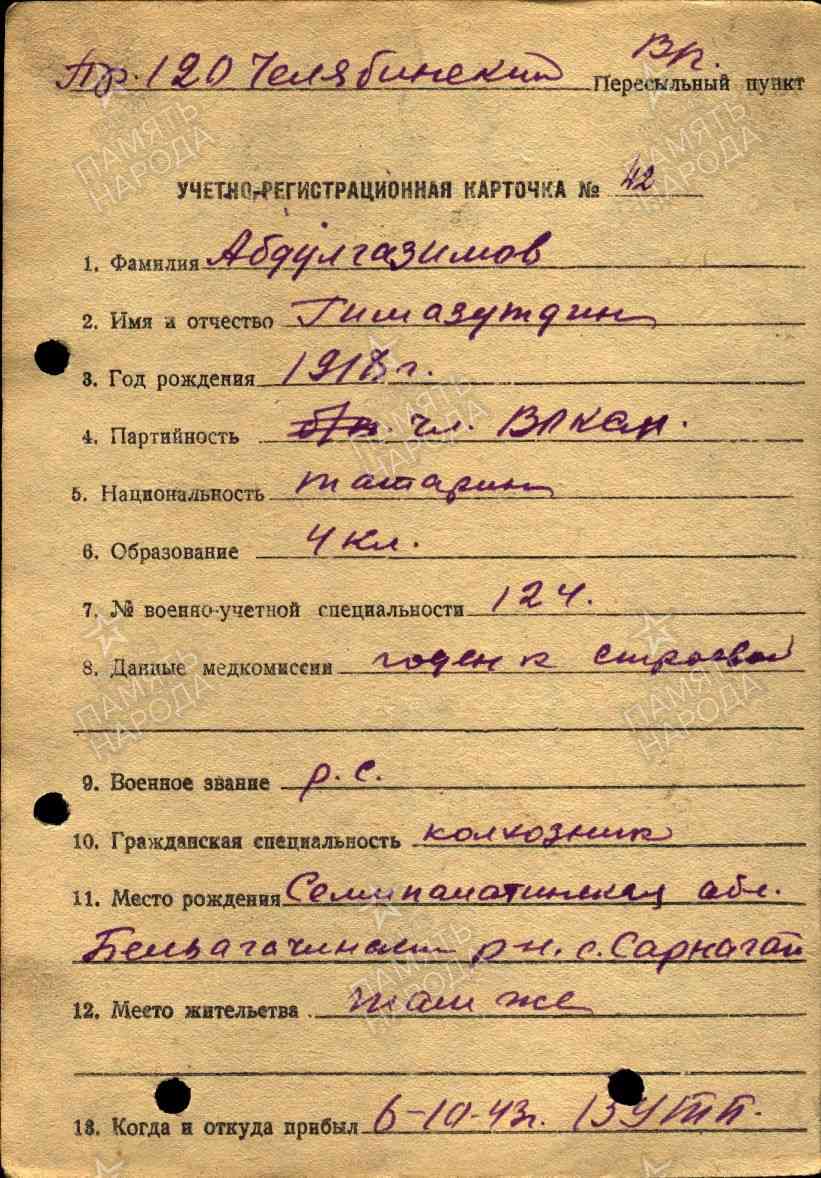 Пр. 120 Челябинский Вп. Пересыльный пункт
УЧЕТНО-РЕГИСТРАЦИОННАЯ КАРТОЧКА № 42
1. Фамилия Абдулгазимов
2. Имя и отчество Гимазутдин
3. Год рождения 1918 г.
4. Партийность б/п. чл. ВЛКСМ.
5. Национальность татарин
6. Образование 4 кл.
7. № военно-учетной специальности 124.
8. Данные медкомиссии годен к строевой
9. Военное звание р. с.
10. Гражданская специальность колхозник
11. Место рождения Семипалатинская обл.
Бельагачинский р-н. с.
12. Место жительства там же
13. Когда и откуда прибыл 6-10-43г. 13 УТП.
ПАМЯТЬ НАРОДА
ПАМЯТЬ НАРОДА
ПАМЯТЬ НАРОДА
ПАМЯТЬ НАРОДА
ПАМЯТЬ НАРОДА
ПАМЯТЬ НАРОДА